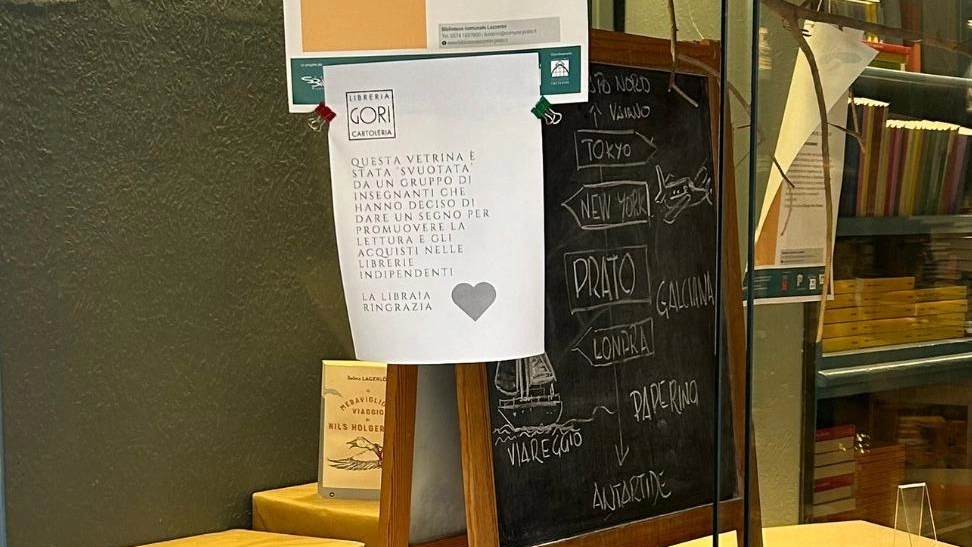 Biblioteca comunale Lazzerini
LIBRERIA
GORI
CARTOLERIA
QUESTA VETRINA È
STATA 'SVUOTATA'
DA UN GRUPPO DI
INSEGNANTI CHE
HANNO DECISO DI
DARE UN SEGNO PER
PROMUOVERE LA
LETTURA E GLI
ACQUISTI NELLE
LIBRERIE
INDIPENDENTI
LA LIBRAIA
RINGRAZIA
NORD
↑ VAIANO
TOKYO
NEW YORK
PRATO
GALCIANA
LONDRA
PAPERINO
VIAREGGIO
ANTARTIDE
Selma
IL
VIAGGIO
DI
NILS